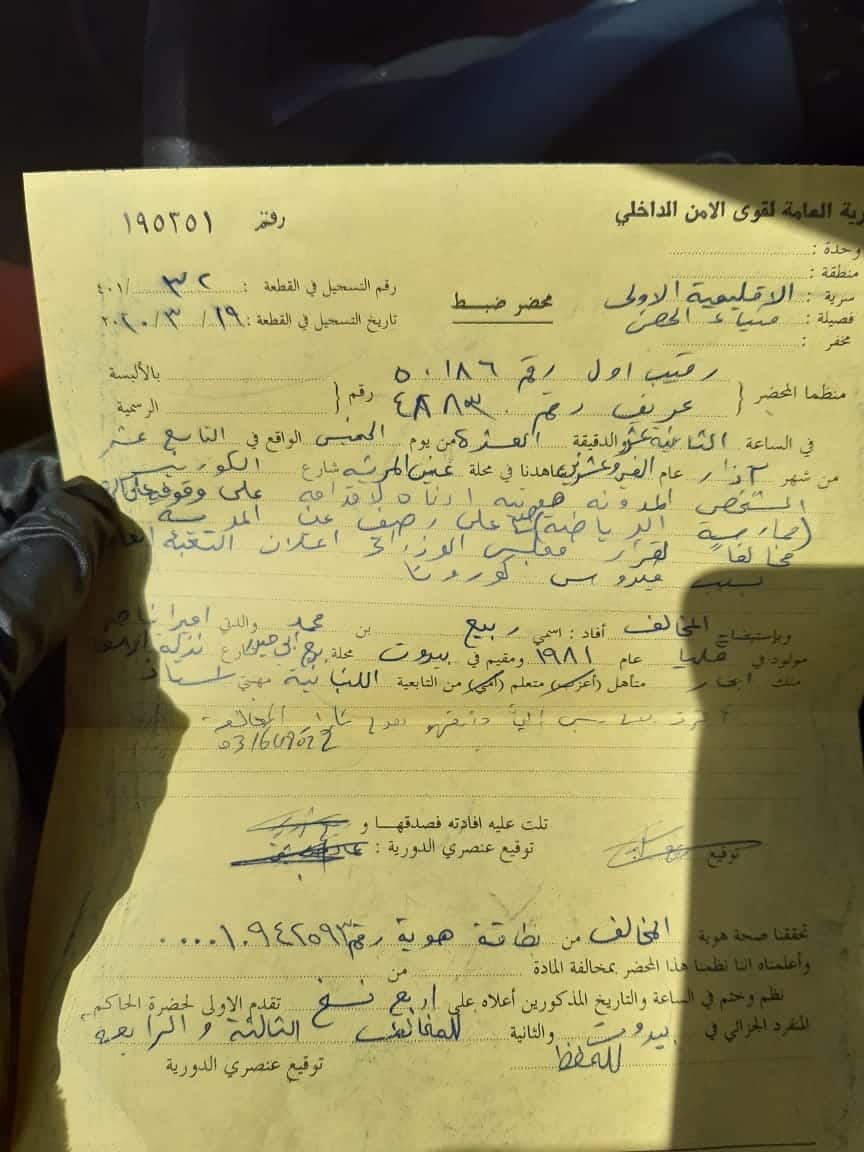 رية العامة لقوى الامن الداخلي
رقم ١٩٥٣٥١
وحدة :
منطقة :
سرية : الاقليمية الاولى
فصيلة : ميناء الحصن
مخفر :
محضر ضبط
رقم التسجيل في القطعة : ٣٢ /٤٠١
تاريخ التسجيل في القطعة : ١٩ / ٣ / ٢٠٢٠
منظما المحضر { رقيب اول رقم ٥٠١٨٦ } رقم بالألبسة
عريف رقم ٤٨٨٣٠ الرسمية
في الساعة الثانية عشر الدقيقة العشرة من يوم الخميس الواقع في التاسع عشر
من شهر آذار عام الفين وعشرين شاهدنا في محلة عين المريسة شارع الكورنيش
الشخص المدونة هويته ادناه لاقدامه على وقوفه
(ممارسة الرياضة) على رصيف عين المريسة
مخالفاً لقرار مجلس الوزراء اعلان التعبئة العامة
بسبب فيروس كورونا
وبإستيضاح المخالف أفاد : اسمي ربيع بن محمد والدتي اميرة
مولود في عام ١٩٨١ ومقيم في بيروت محلة برج ابي حيدر شارع
ملك متأهل (أعزب) متعلم (أمي) من التابعية اللبنانية مهنتي استاذ
المخالفة
تلت عليه افادته فصدقها و
توقيع توقيع عنصري الدورية :
تحققنا صحة هوية المخالف من بطاقة هوية رقم ٠٠٠٠١٠٩٤٢٥٩٣
وأعلمناه اننا نظمنا هذا المحضر بمخالفة المادة من
نظم وختم في الساعة والتاريخ المذكورين أعلاه على اربع نسخ تقدم الاولى لحضرة الحاكم
المنفرد الجزائي في بيروت والثانية للمخالف الثالثة والرابعة
للحفظ
توقيع عنصري الدورية